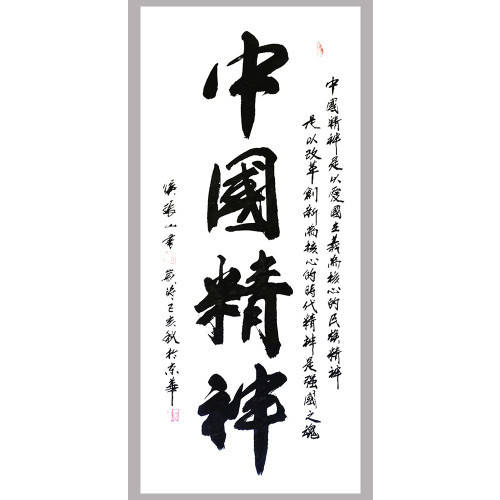 中國精神是以愛國主義為核心的民族精神
是以改革創新為核心的時代精神是强國之魂
中國精神
張山書 己亥秋於京華